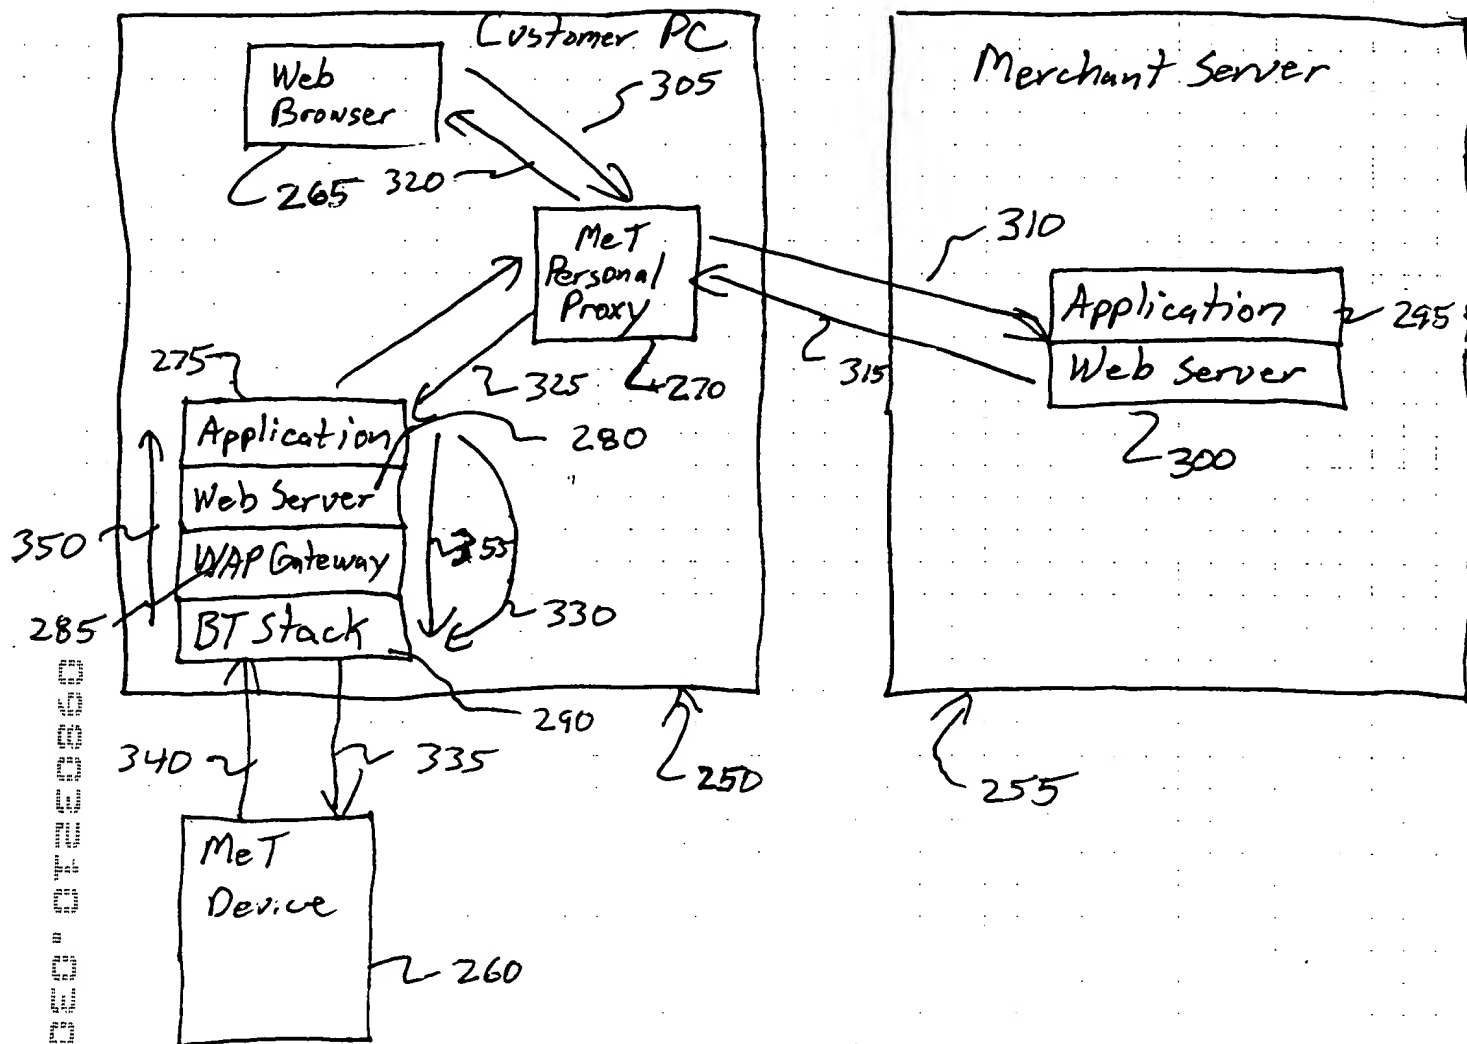 Customer PC
Merchant Server
Web
Browser
305
265
320
MeT
Personal
Proxy
310
Application
295
Web Server
315
300
275
325
270
Application
280
Web Server
350
WAP Gateway
355
285
330
BT Stack
290
340
335
250
255
MeT
Device
260